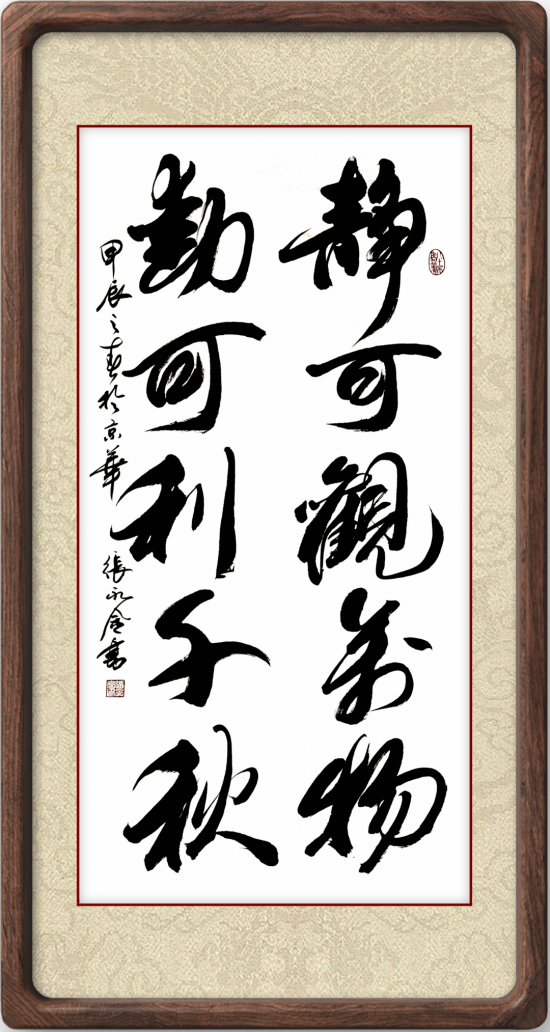 静可觀萬物
動可利千秋
甲辰之春於京華 張永金書